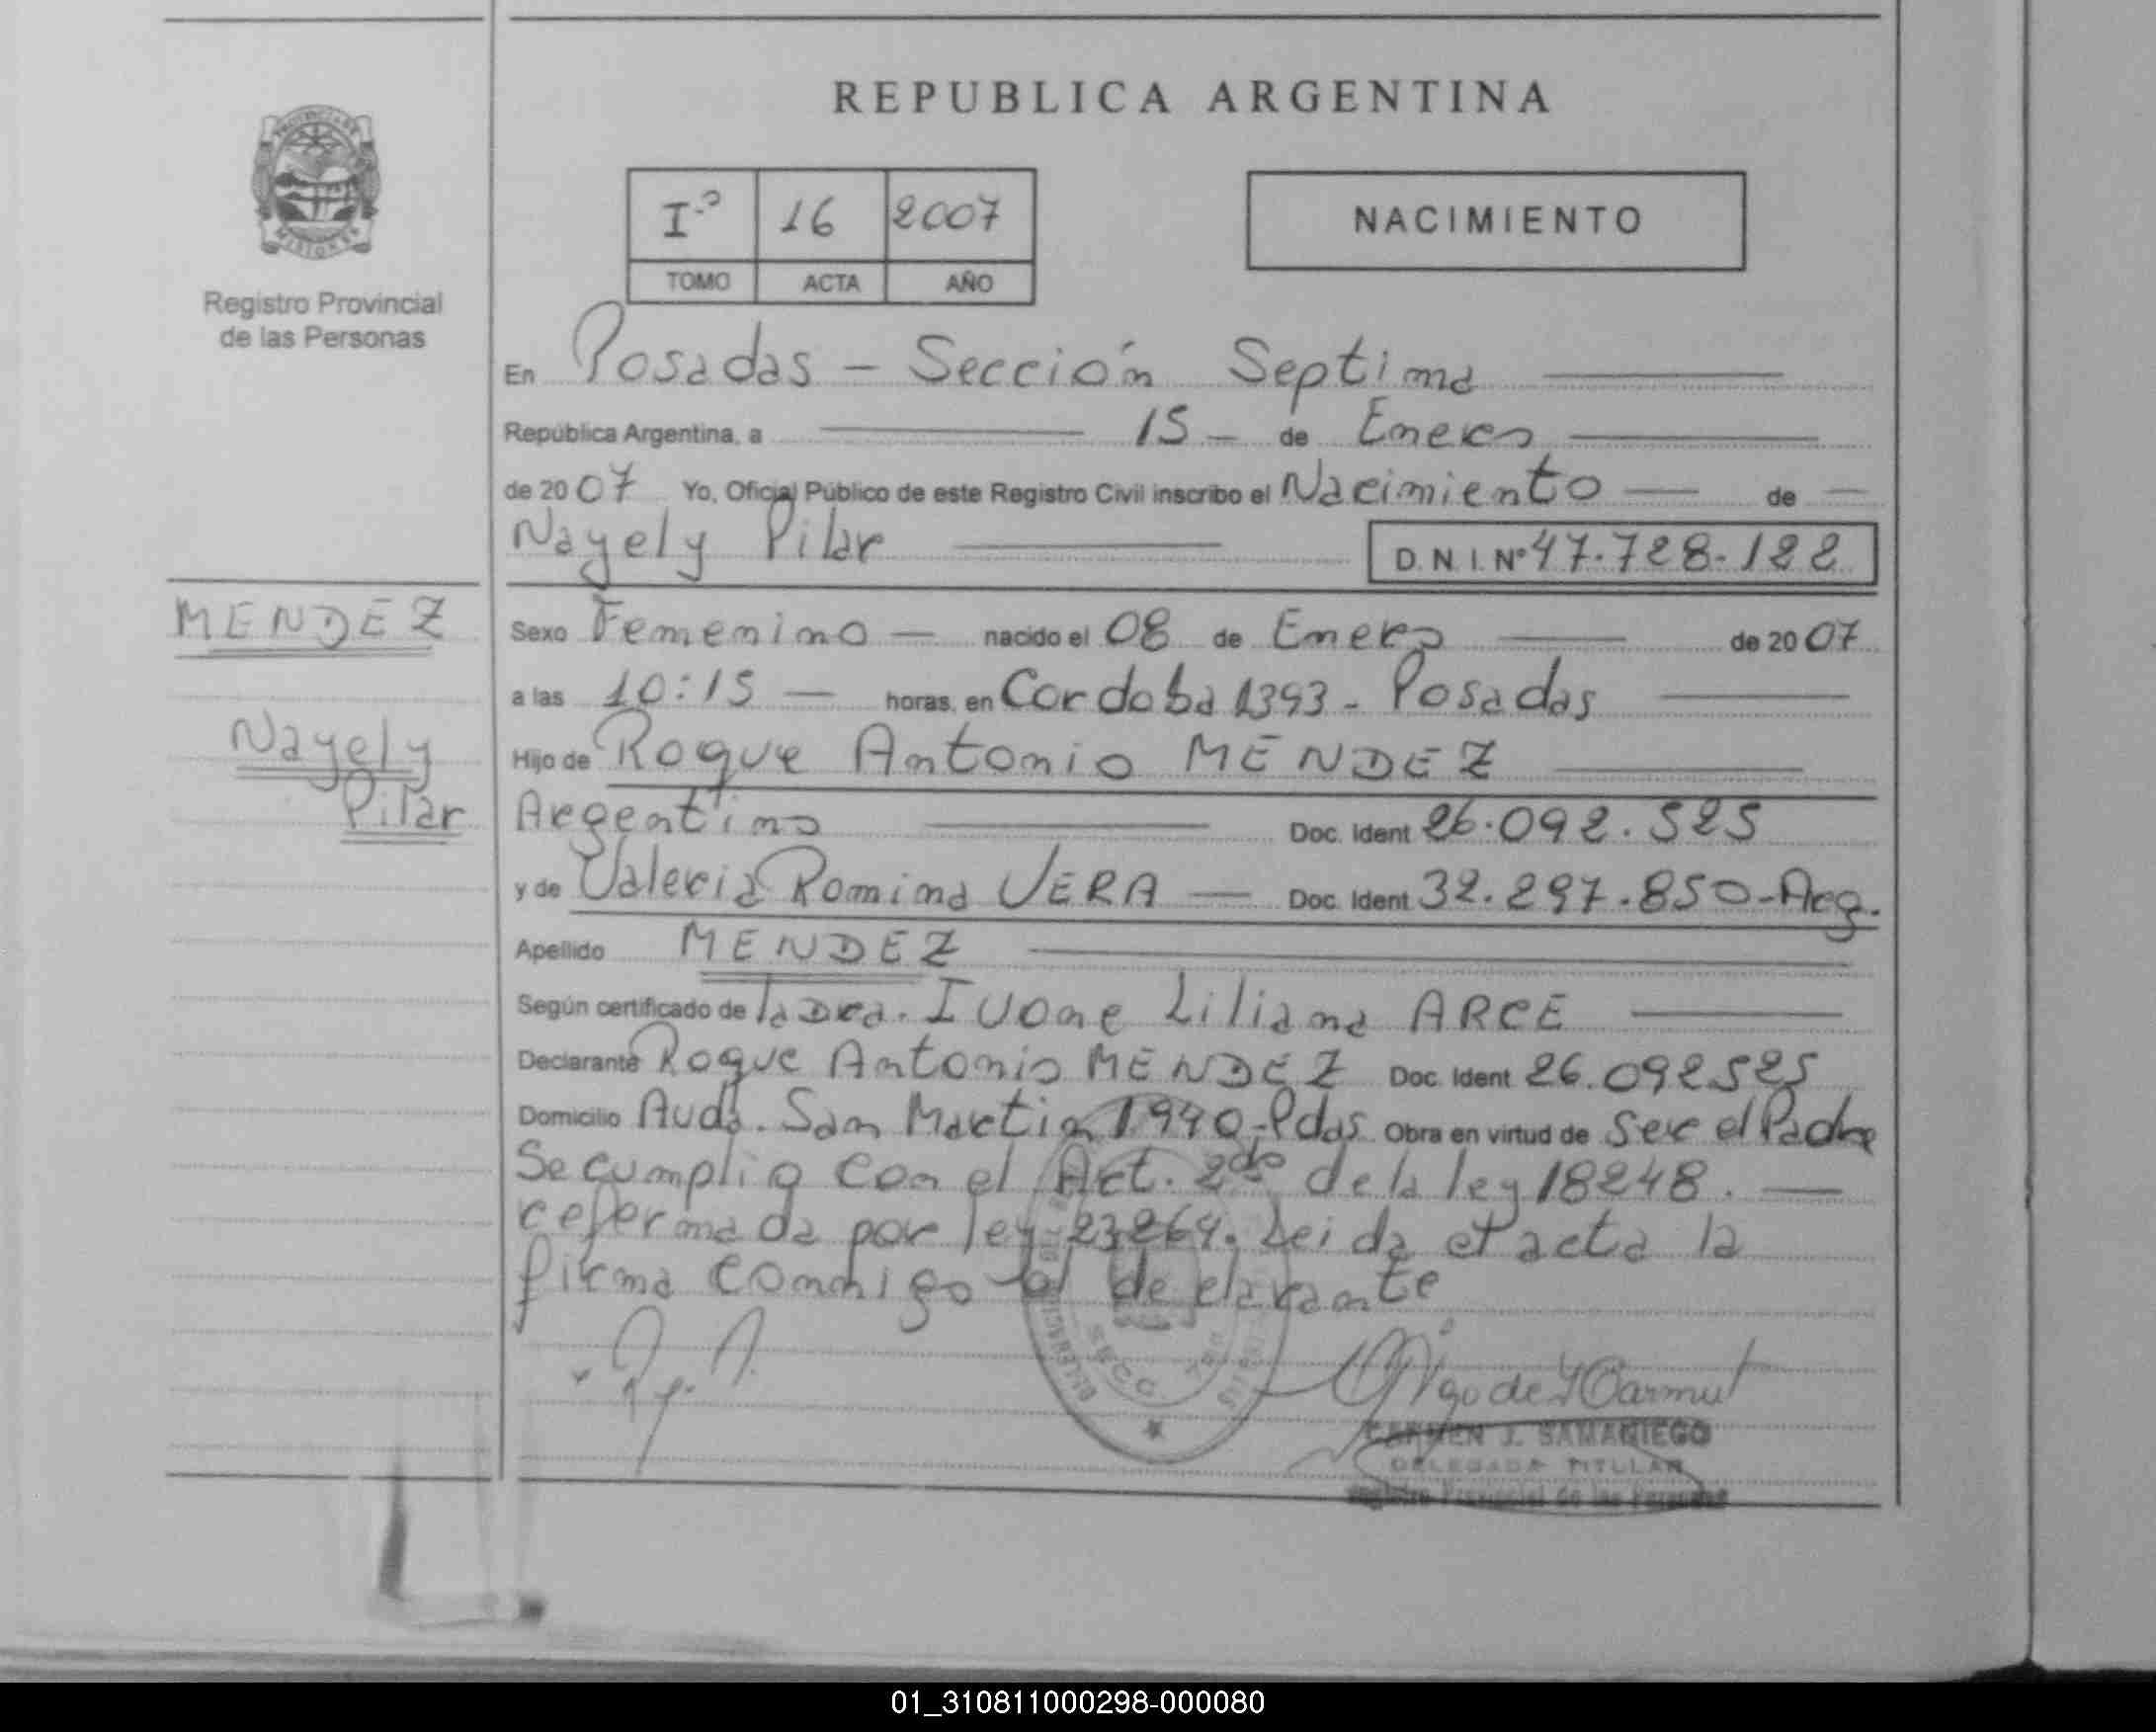 REPUBLICA ARGENTINA
PROVINCIA DE
MISIONES
Registro Provincial
de las Personas
Iº 16 2007
TOMO ACTA AÑO
NACIMIENTO
En Posadas - Sección Septima
República Argentina, a 15 - de Enero
de 2007 Yo, Oficial Público de este Registro Civil inscribo el Nacimiento — de —
Nayely Pilar D.N.I. Nº 47.728.122
MENDEZ
Nayely
Pilar
Sexo Femenino — nacido el 08 de Enero de 2007
a las 10:15 — horas, en Cordoba 1393 - Posadas
Hijo de Roque Antonio MENDEZ
Argentino Doc. Ident 26.092.525
y de Valeria Romina VERA — Doc. Ident 32.297.850 - Arg.
Apellido MENDEZ
Según certificado de la Dra. Ivone Liliana ARCE
Declarante Roque Antonio MENDEZ Doc. Ident 26.092525
Domicilio Avda. San Martin 1940 - Pdas Obra en virtud de Ser el Padre
Se cumplio con el Art. 2do de la ley 18248. —
reformada por ley 23264. Leida el acta la
firma conmigo el declarante
CARMEN J. SAMANIEGO
DELEGADA TITULAR
Registro Provincial de las Personas
01_310811000298-000080